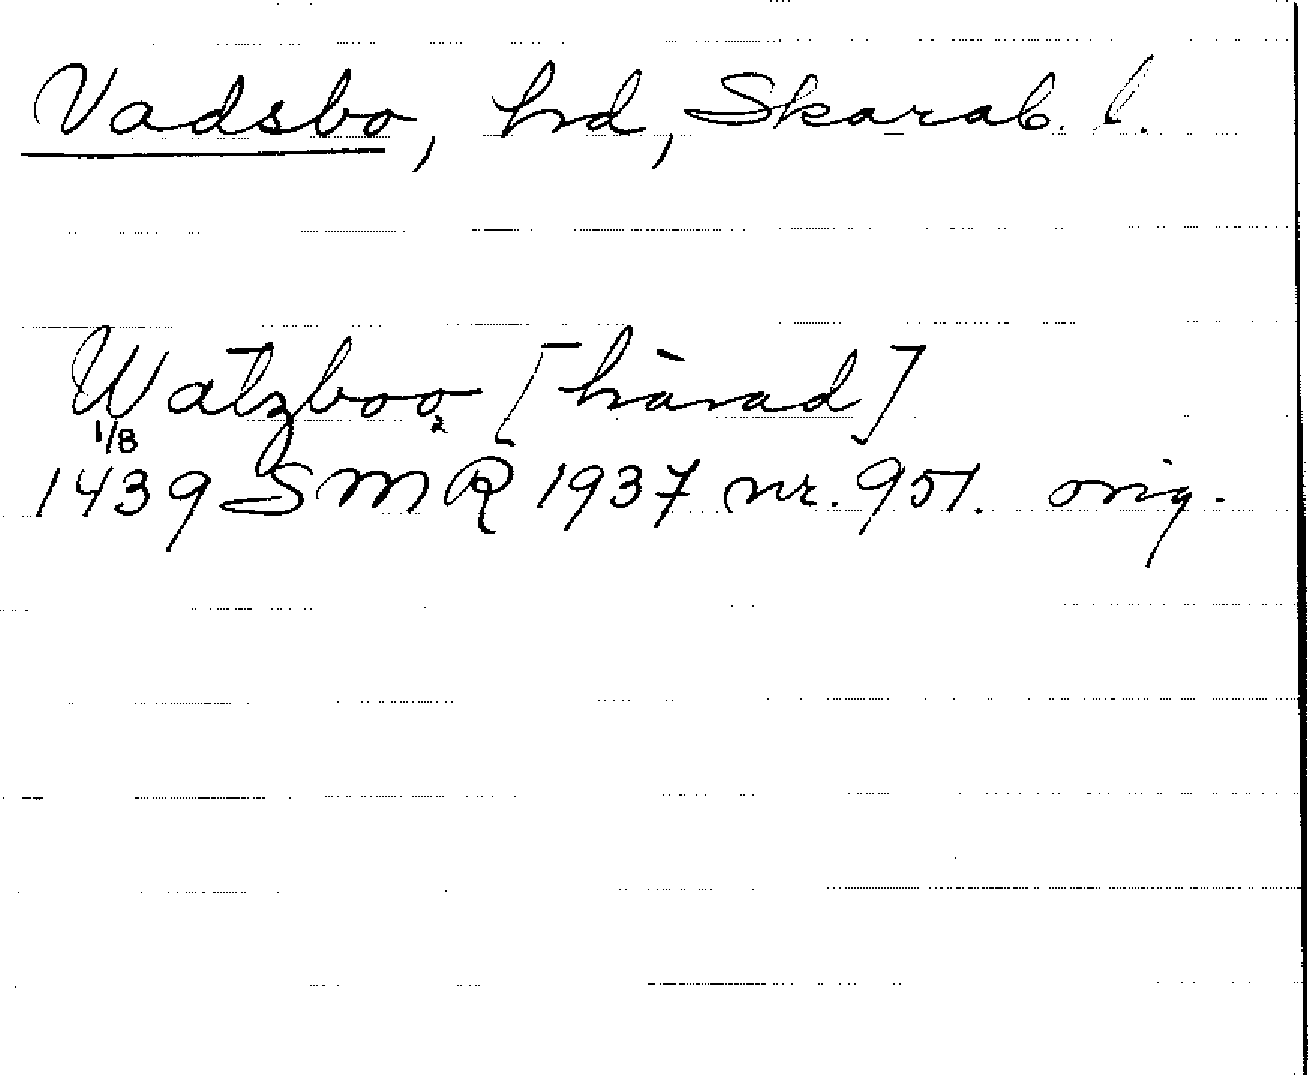 Vadsbo, hd, Skarab. l.
Watzboo [härad]
1/8
1439 SMR 1937 nr. 951. orig.